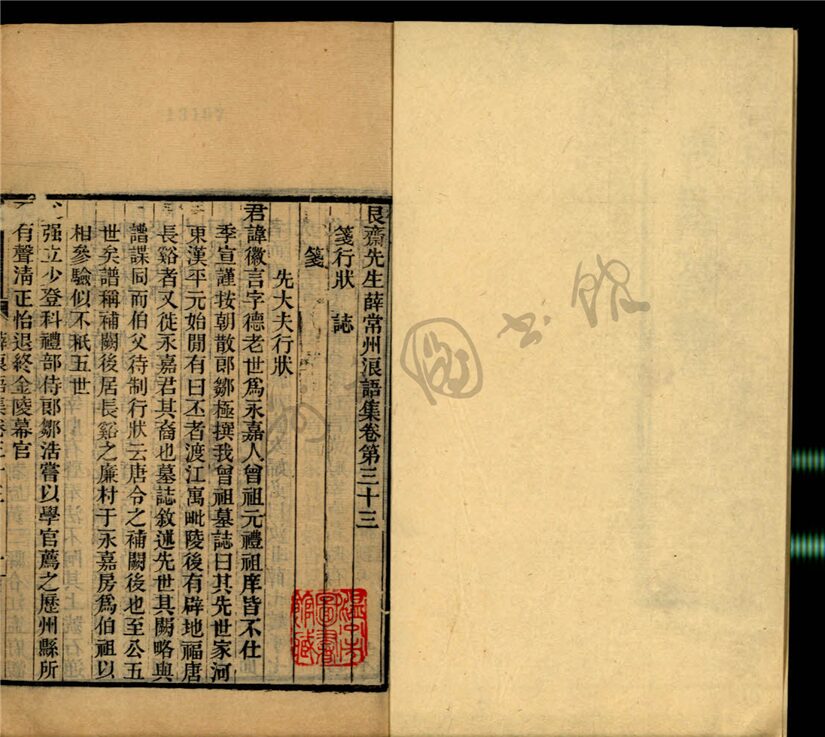 艮齋先生薛常州浪語集卷第三十三
箋行狀　誌
箋
先大夫行狀
君諱徽言字德老世爲永嘉人曾祖元禮祖庠皆不仕
季宣謹按朝散郎鄒極撰我曾祖墓誌曰其先世家河
東漢平元始閒有曰丕者渡江寓毗陵後有辟地福唐
長谿者又徙永嘉君其裔也墓誌敘述先世其闕略與
譜諜同而伯父待制行狀云唐令之補闕後也至公五
世矣譜稱補闕後居長谿之廉村于永嘉房爲伯祖以
相參驗似不祇五世
强立少登科禮部侍郎鄒浩嘗以學官薦之歷州縣所
有聲淸正怡退終金陵幕官
圖書館